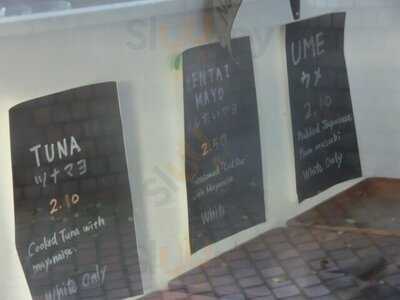 TUNA
ツナマヨ
2.10
Cooked Tuna with
mayonaise.
White Only
MENTAI
MAYO
2.50
Condensed "Cod Roe"
with Mayonaise
White
UME
ウメ
2.10
Pickled Japanese
Plum
White Only